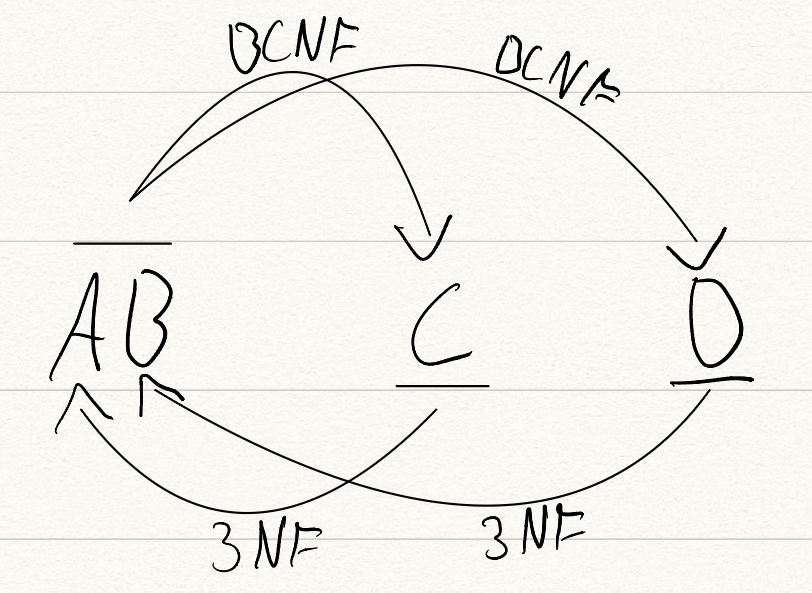 BCNF BCNF
AB C D
3NF 3NF